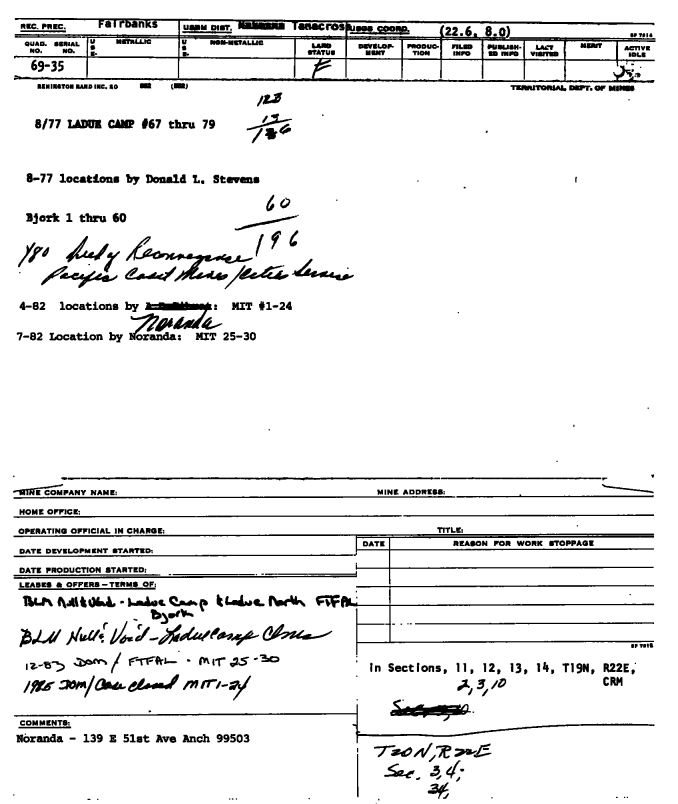 REC. PREC. Fairbanks USBM DIST. Tanacross USGS COORD. (22.6, 8.0) SF 7014
QUAD. NO. SERIAL NO. USE METALLIC USE NON-METALLIC LAND STATUS DEVELOP-MENT PRODUC-TION FILED INFO PUBLISH-ED INFO LAST VISITED MERIT ACTIVE IDLE
69-35 F
REMINGTON RAND INC. SO TERRITORIAL DEPT. OF MINES
123
8/77 LADUE CAMP #67 thru 79 13
136
8-77 locations by Donald L. Stevens
60
Bjork 1 thru 60
196
Y80 Reconnaissance
Pacific Coast Mines/Cities Service
4-82 locations by : MIT #1-24
Noranda
7-82 Location by Noranda: MIT 25-30
MINE COMPANY NAME: MINE ADDRESS:
HOME OFFICE:
OPERATING OFFICIAL IN CHARGE: TITLE:
DATE DEVELOPMENT STARTED:
DATE REASON FOR WORK STOPPAGE
DATE PRODUCTION STARTED:
LEASES & OFFERS – TERMS OF:
BLM Null & Void - Ladue Camp & Ladue North FTFAL
Bjork
BLM Null & Void - Ladue Camp Clms
12-83 DOM / FTFAL - MIT 25-30
1985 DOM/Case closed MIT 1-24
SF 7015
In Sections, 11, 12, 13, 14, T19N, R22E,
2,3,10 CRM
COMMENTS:
Noranda - 139 E 51st Ave Anch 99503
T20N, R22E
Sec. 3,4;
34,